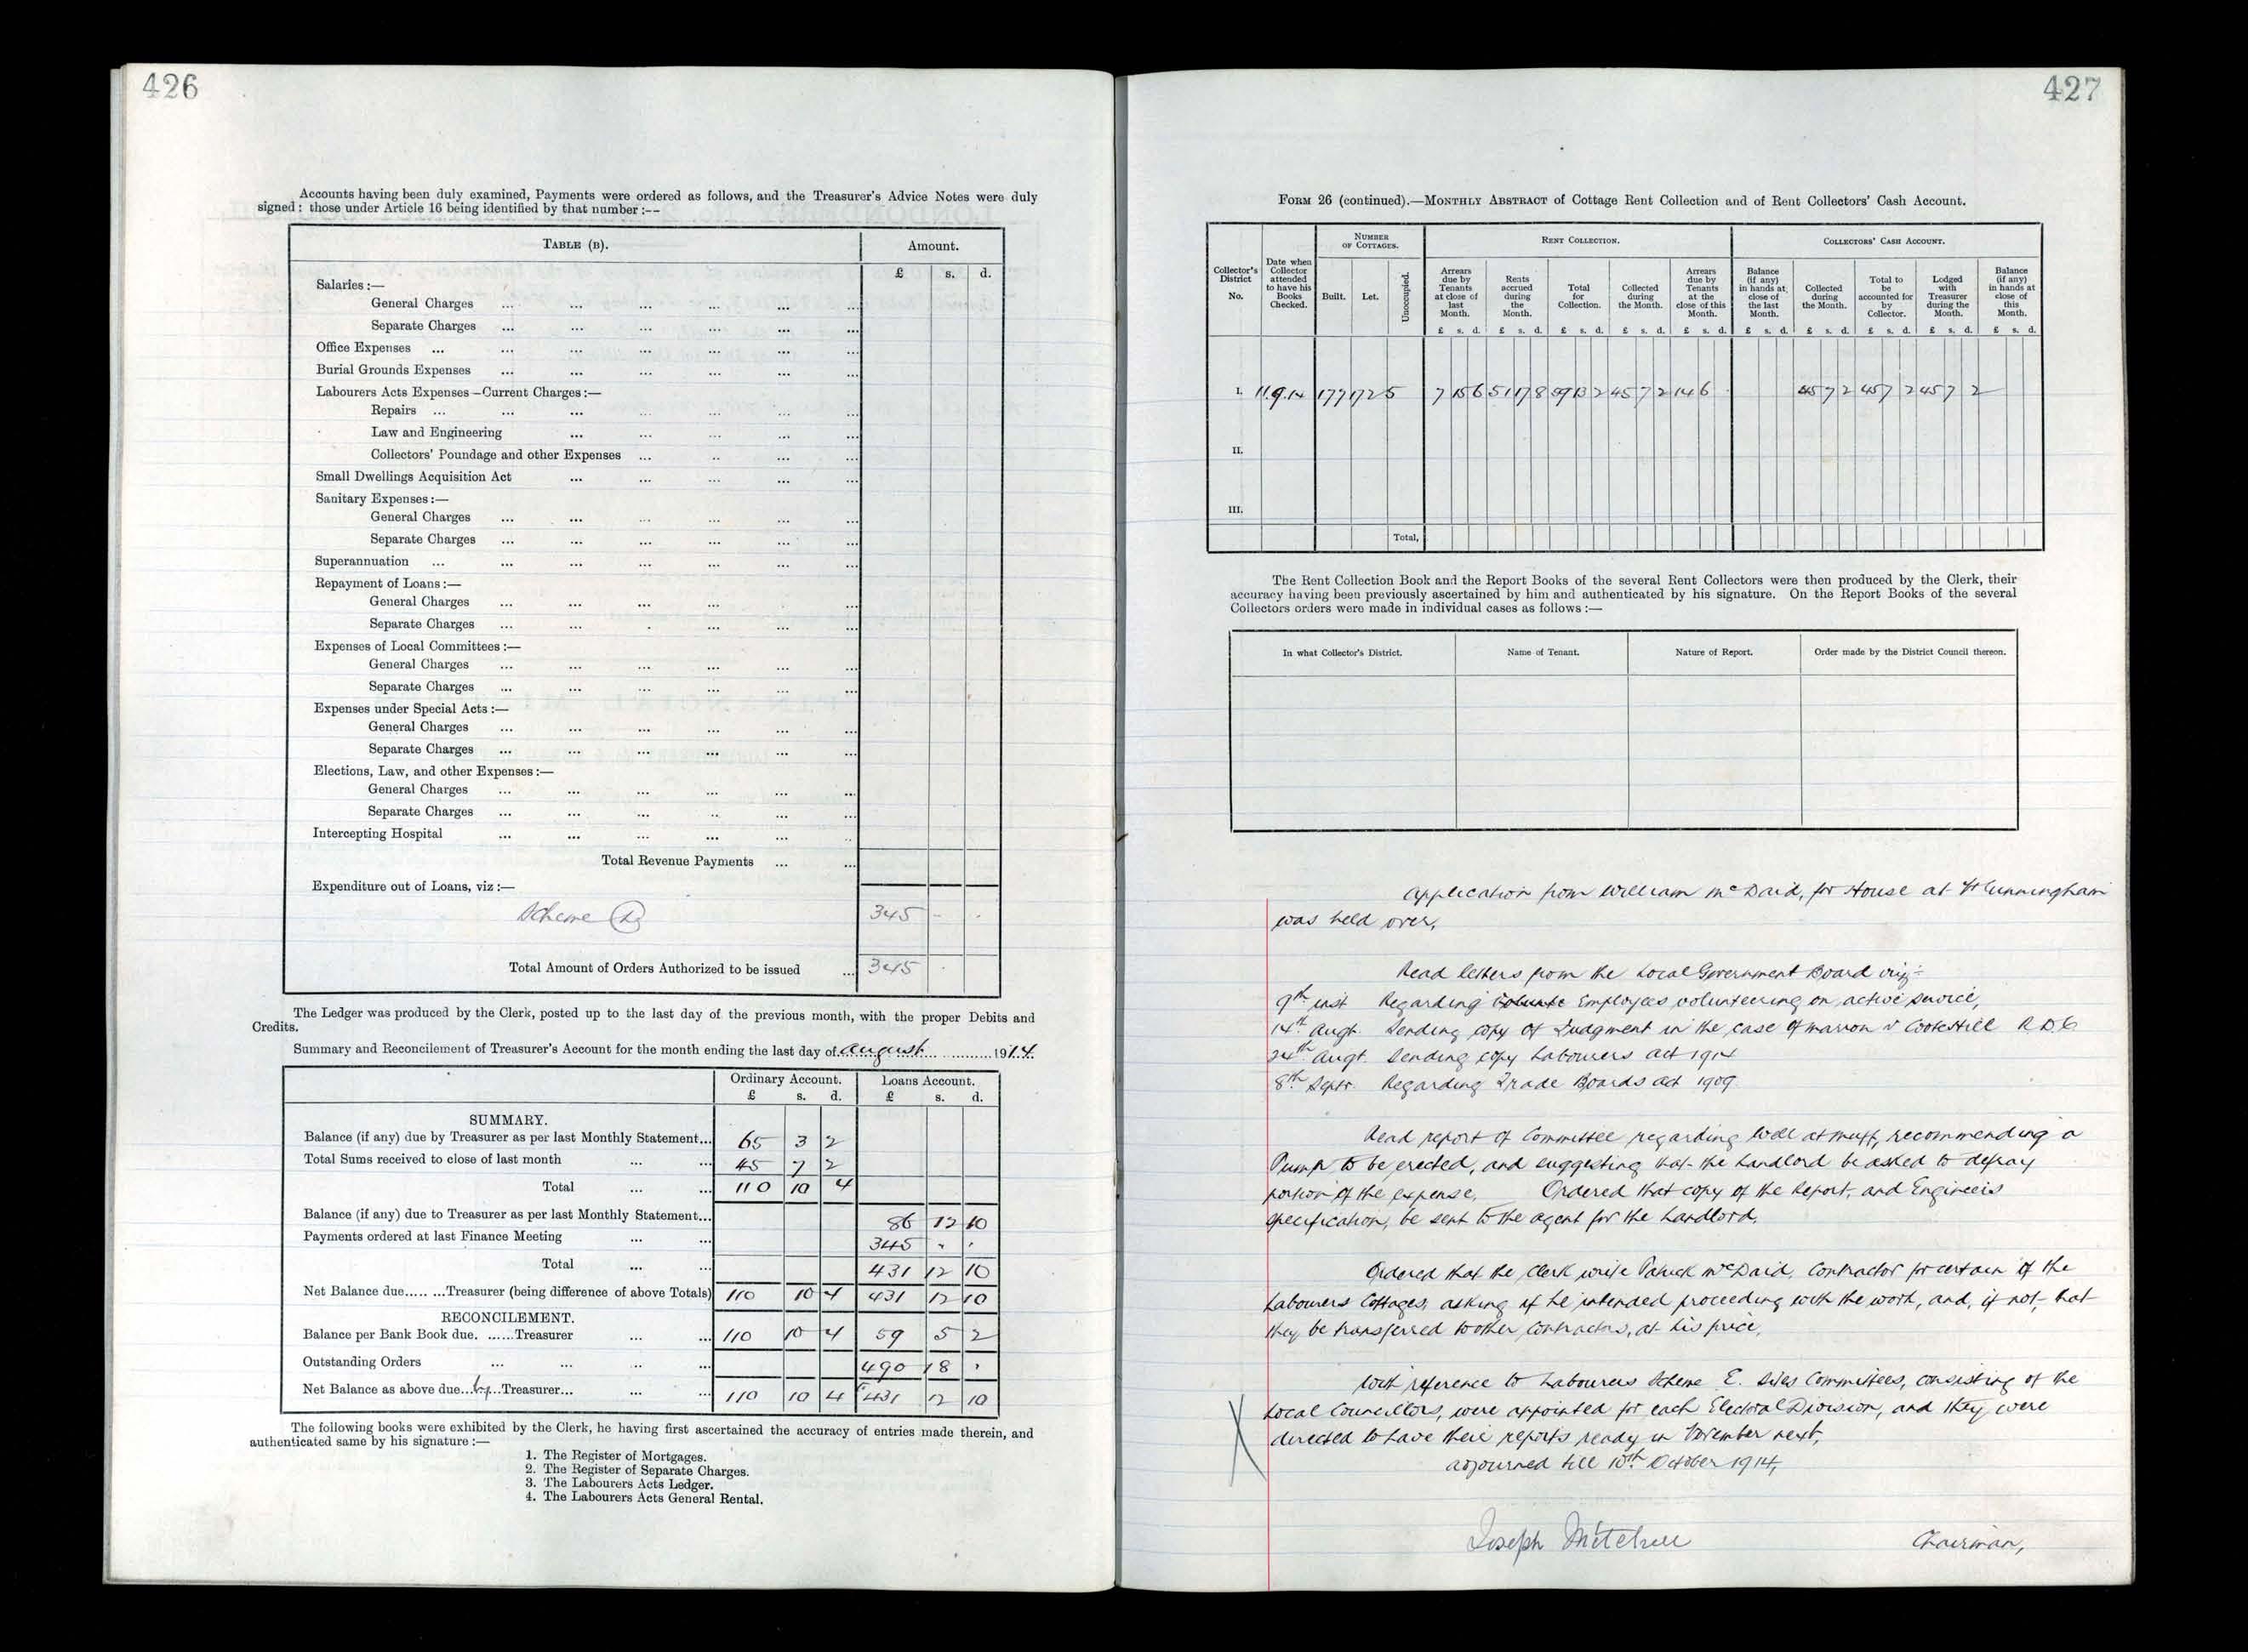 426
Accounts having been duly examined, Payments were ordered as follows, and the Treasurer's Advice Notes were duly
signed: those under Article 16 being identified by that number:--
TABLE (B). Amount.
£ s. d.
Salaries:—
General Charges ... ... ... ... ... ...
Separate Charges ... ... ... ... ... ...
Office Expenses ... ... ... ... ... ... ...
Burial Grounds Expenses ... ... ... ... ... ...
Labourers Acts Expenses—Current Charges:—
Repairs ... ... ... ... ... ... ...
Law and Engineering ... ... ... ... ...
Collectors' Poundage and other Expenses ... ... ... ... ...
Small Dwellings Acquisition Act ... ... ... ... ...
Sanitary Expenses:—
General Charges ... ... ... ... ... ...
Separate Charges ... ... ... ... ... ...
Superannuation ... ... ... ... ... ... ...
Repayment of Loans:—
General Charges ... ... ... ... ... ...
Separate Charges ... ... . ... ... ...
Expenses of Local Committees:—
General Charges ... ... ... ... ... ...
Separate Charges ... ... ... ... ... ...
Expenses under Special Acts:—
General Charges ... ... ... ... ... ...
Separate Charges ... ... ... ... ... ...
Elections, Law, and other Expenses:—
General Charges ... ... ... ... ... ...
Separate Charges ... ... ... .. ... ...
Intercepting Hospital ... ... ... ... ... ..
Total Revenue Payments ... ...
Expenditure out of Loans, viz:—
Scheme (D) 345 - .
Total Amount of Orders Authorized to be issued ... 345 .
The Ledger was produced by the Clerk, posted up to the last day of the previous month, with the proper Debits and
Credits.
Summary and Reconcilement of Treasurer's Account for the month ending the last day of August 1914.
Ordinary Account. Loans Account.
£ s. d. £ s. d.
SUMMARY.
Balance (if any) due by Treasurer as per last Monthly Statement... 65 3 2
Total Sums received to close of last month ... ... 45 7 2
Total ... ... 110 10 4
Balance (if any) due to Treasurer as per last Monthly Statement... 86 12 10
Payments ordered at last Finance Meeting ... ... 345 . .
Total ... ... 431 12 10
Net Balance due..... ...Treasurer (being difference of above Totals) 110 10 4 431 12 10
RECONCILEMENT.
Balance per Bank Book due. ......Treasurer ... ... 110 10 4 59 5 2
Outstanding Orders ... ... .. ... 490 18 .
Net Balance as above due...by...Treasurer... ... ... 110 10 4 431 12 10
The following books were exhibited by the Clerk, he having first ascertained the accuracy of entries made therein, and
authenticated same by his signature:—
1. The Register of Mortgages.
2. The Register of Separate Charges.
3. The Labourers Acts Ledger.
4. The Labourers Acts General Rental.
427
FORM 26 (continued).—MONTHLY ABSTRACT of Cottage Rent Collection and of Rent Collectors' Cash Account.
Collector's District No. Date when Collector attended to have his Books Checked. NUMBER OF COTTAGES. RENT COLLECTION. COLLECTORS' CASH ACCOUNT.
Built. Let. Unoccupied. Arrears due by Tenants at close of last Month. Rents accrued during the Month. Total for Collection. Collected during the Month. Arrears due by Tenants at the close of this Month. Balance (if any) in hands at close of the last Month. Collected during the Month. Total to be accounted for by Collector. Lodged with Treasurer during the Month. Balance (if any) in hands at close of this Month.
£ s. d. £ s. d. £ s. d. £ s. d. £ s. d. £ s. d. £ s. d. £ s. d. £ s. d. £ s. d.
I. 11.9.14 177 172 5 7 15 6 51 17 8 59 13 2 45 7 2 14 6 45 7 2 45 7 2 45 7 2
II.
III.
Total,
The Rent Collection Book and the Report Books of the several Rent Collectors were then produced by the Clerk, their
accuracy having been previously ascertained by him and authenticated by his signature. On the Report Books of the several
Collectors orders were made in individual cases as follows:—
In what Collector's District. Name of Tenant. Nature of Report. Order made by the District Council thereon.
Application from William McDaid, for House at Nt Cunningham
was held over.
Read letters from the Local Government Board viz:-
9th inst Regarding Employees volunteering on active service,
14th Augt. Sending copy of Judgment in the case of Marron v Cootehill R D C
24th Augt. Sending copy Labourers Act 1914
8th Septr. Regarding Trade Boards Act 1909
Read report of Committee regarding Well at Muff, recommending a
Pump to be erected, and suggesting that the Landlord be asked to defray
portion of the expense. Ordered that copy of the Report, and Engineers
specification, be sent to the agent for the Landlord.
Ordered that the Clerk write Patrick McDaid, Contractor for certain of the
Labourers Cottages, asking if he intended proceeding with the work, and, if not, that
they be transferred to other Contractors, at his price.
With reference to Labourers Scheme E. Sites Committees, consisting of the
Local Councillors, were appointed for each Electoral Division, and they were
directed to have their reports ready in November next.
Adjourned till 10th October 1914,
Joseph Mitchell Chairman,